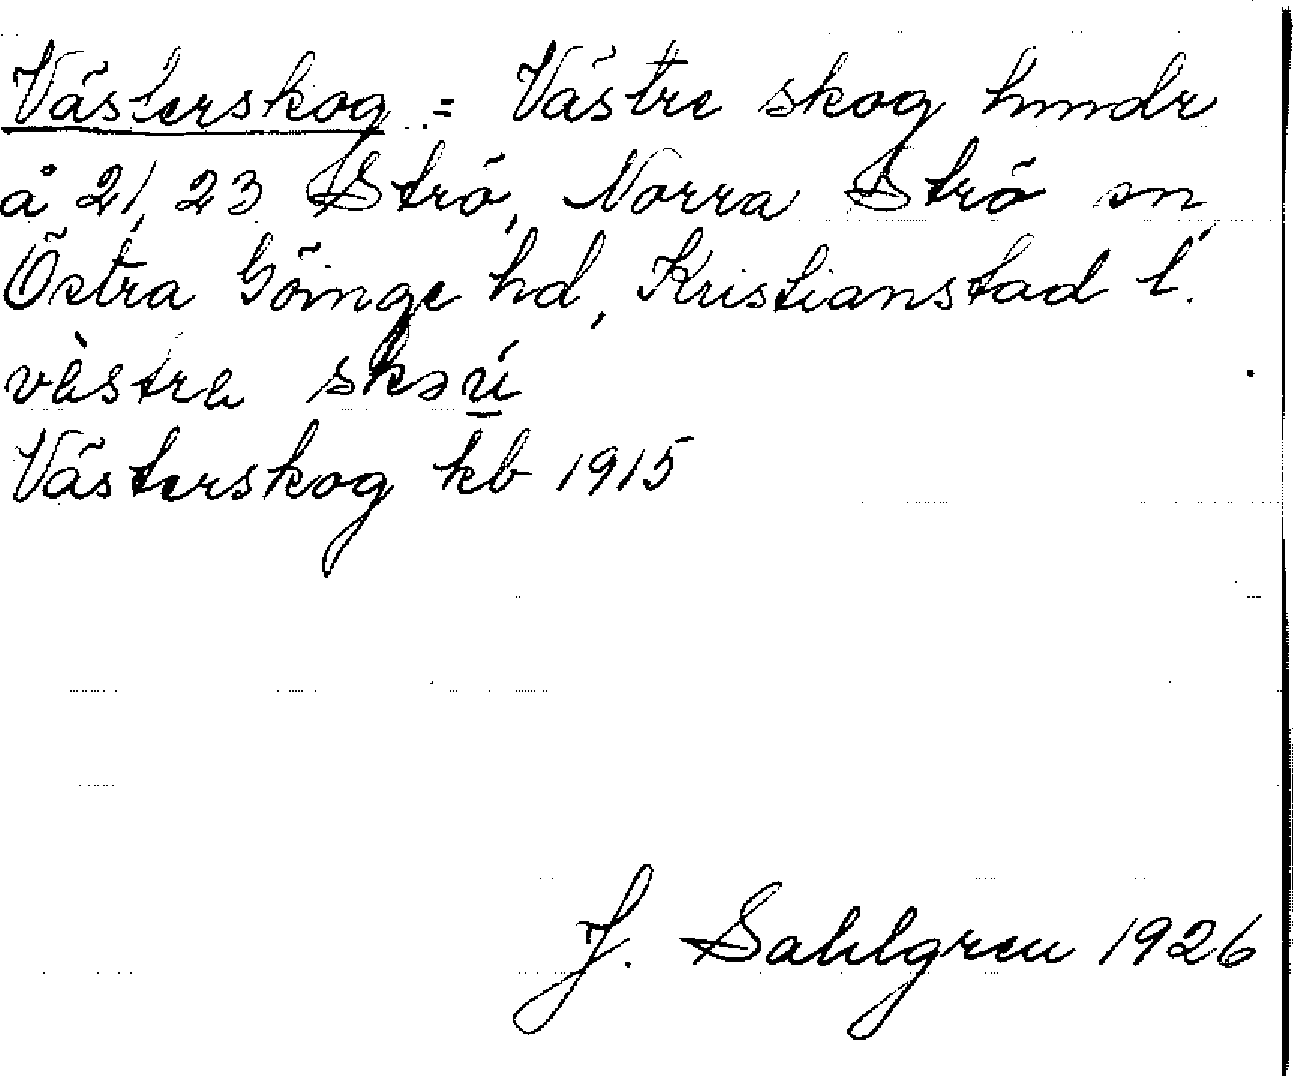 Västerskog = Västre skog hmdr
å 21, 23 Strö, Norra Strö sn,
Östra Göinge hd, Kristianstad l.
västra skɔu̲
Västerskog kb 1915
J. Sahlgren 1926